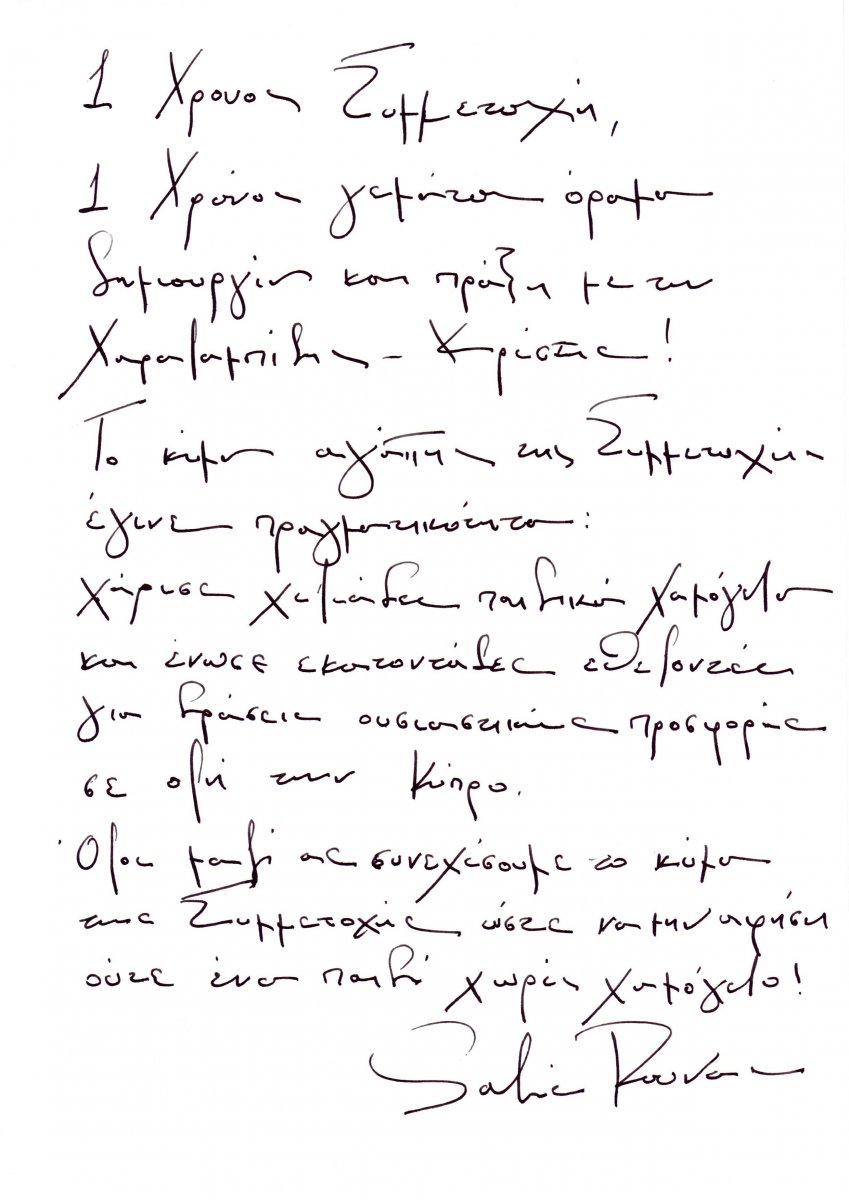 1 Χρόνος Συμμετοχή,
1 Χρόνος γεμάτος όραμα
δημιουργία και πράξη με την
Χαραλαμπίδης – Κρίστης!
Το κύμα αγάπης της Συμμετοχής
έγινε πραγματικότητα:
χάρισε χιλιάδες παιδικά χαμόγελα
και ένωσε εκατοντάδες εθελοντές
για δράσεις ουσιαστικής προσφοράς
σε όλη την Κύπρο.
Όλοι μαζί ας συνεχίσουμε το κύμα
της Συμμετοχής ώστε να μην αφήσει
ούτε ένα παιδί χωρίς χαμόγελο!
Σάκης Ρουβάς